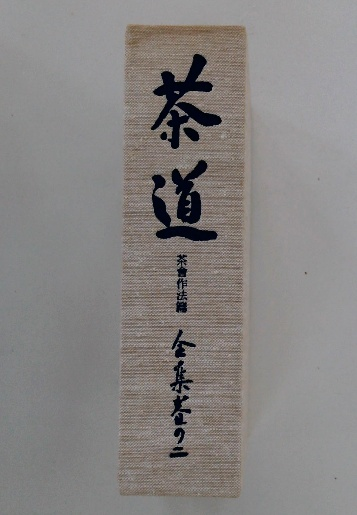 茶道
茶會作法篇
全集巻の二